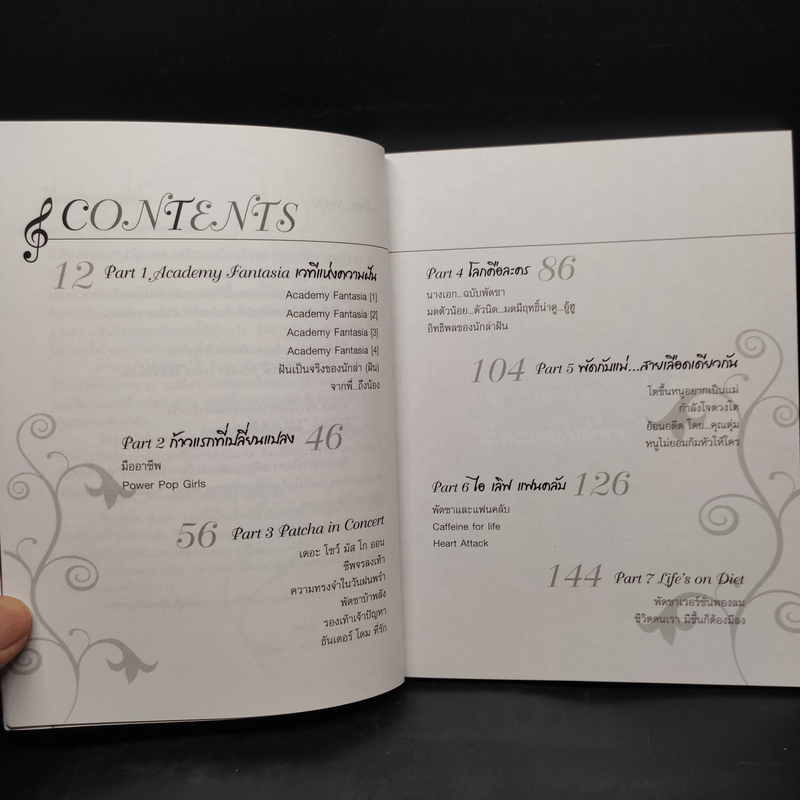 CONTENTS
12 Part 1 Academy Fantasia เวทีแห่งความฝัน
Academy Fantasia [1]
Academy Fantasia [2]
Academy Fantasia [3]
Academy Fantasia [4]
ฝันเป็นจริงของนักล่า (ฝัน)
จากพี่...ถึงน้อง
Part 2 ก้าวแรกที่เปลี่ยนแปลง 46
มืออาชีพ
Power Pop Girls
56 Part 3 Patcha in Concert
เดอะ โชว์ มัส โก ออน
ชีพจรลงเท้า
ความทรงจำในวันฝนพรำ
พัดชาบ้าพลัง
รองเท้าเจ้าปัญหา
ธันเดอร์ โดม ที่รัก
Part 4 โลกคือละคร 86
นางเอก...ฉบับพัดชา
มดตัวน้อย...ตัวนิด...มดมีฤทธิ์น่าดู...อู้ฮู
อิทธิพลของนักล่าฝัน
104 Part 5 พัดกับแม่...สายเลือดเดียวกัน
โตขึ้นหนูอยากเป็นแม่
กำลังใจดวงโต
ย้อนอดีต โดย...คุณตุ่ม
หนูไม่ยอมก้มหัวให้ใคร
Part 6 ไอ เลิฟ แฟนคลับ 126
พัดชาและแฟนคลับ
Caffeine for life
Heart Attack
144 Part 7 Life's on Diet
พัดชาเวอร์ชันพองลม
ชีวิตคนเรา มีขึ้นก็ต้องมีลง